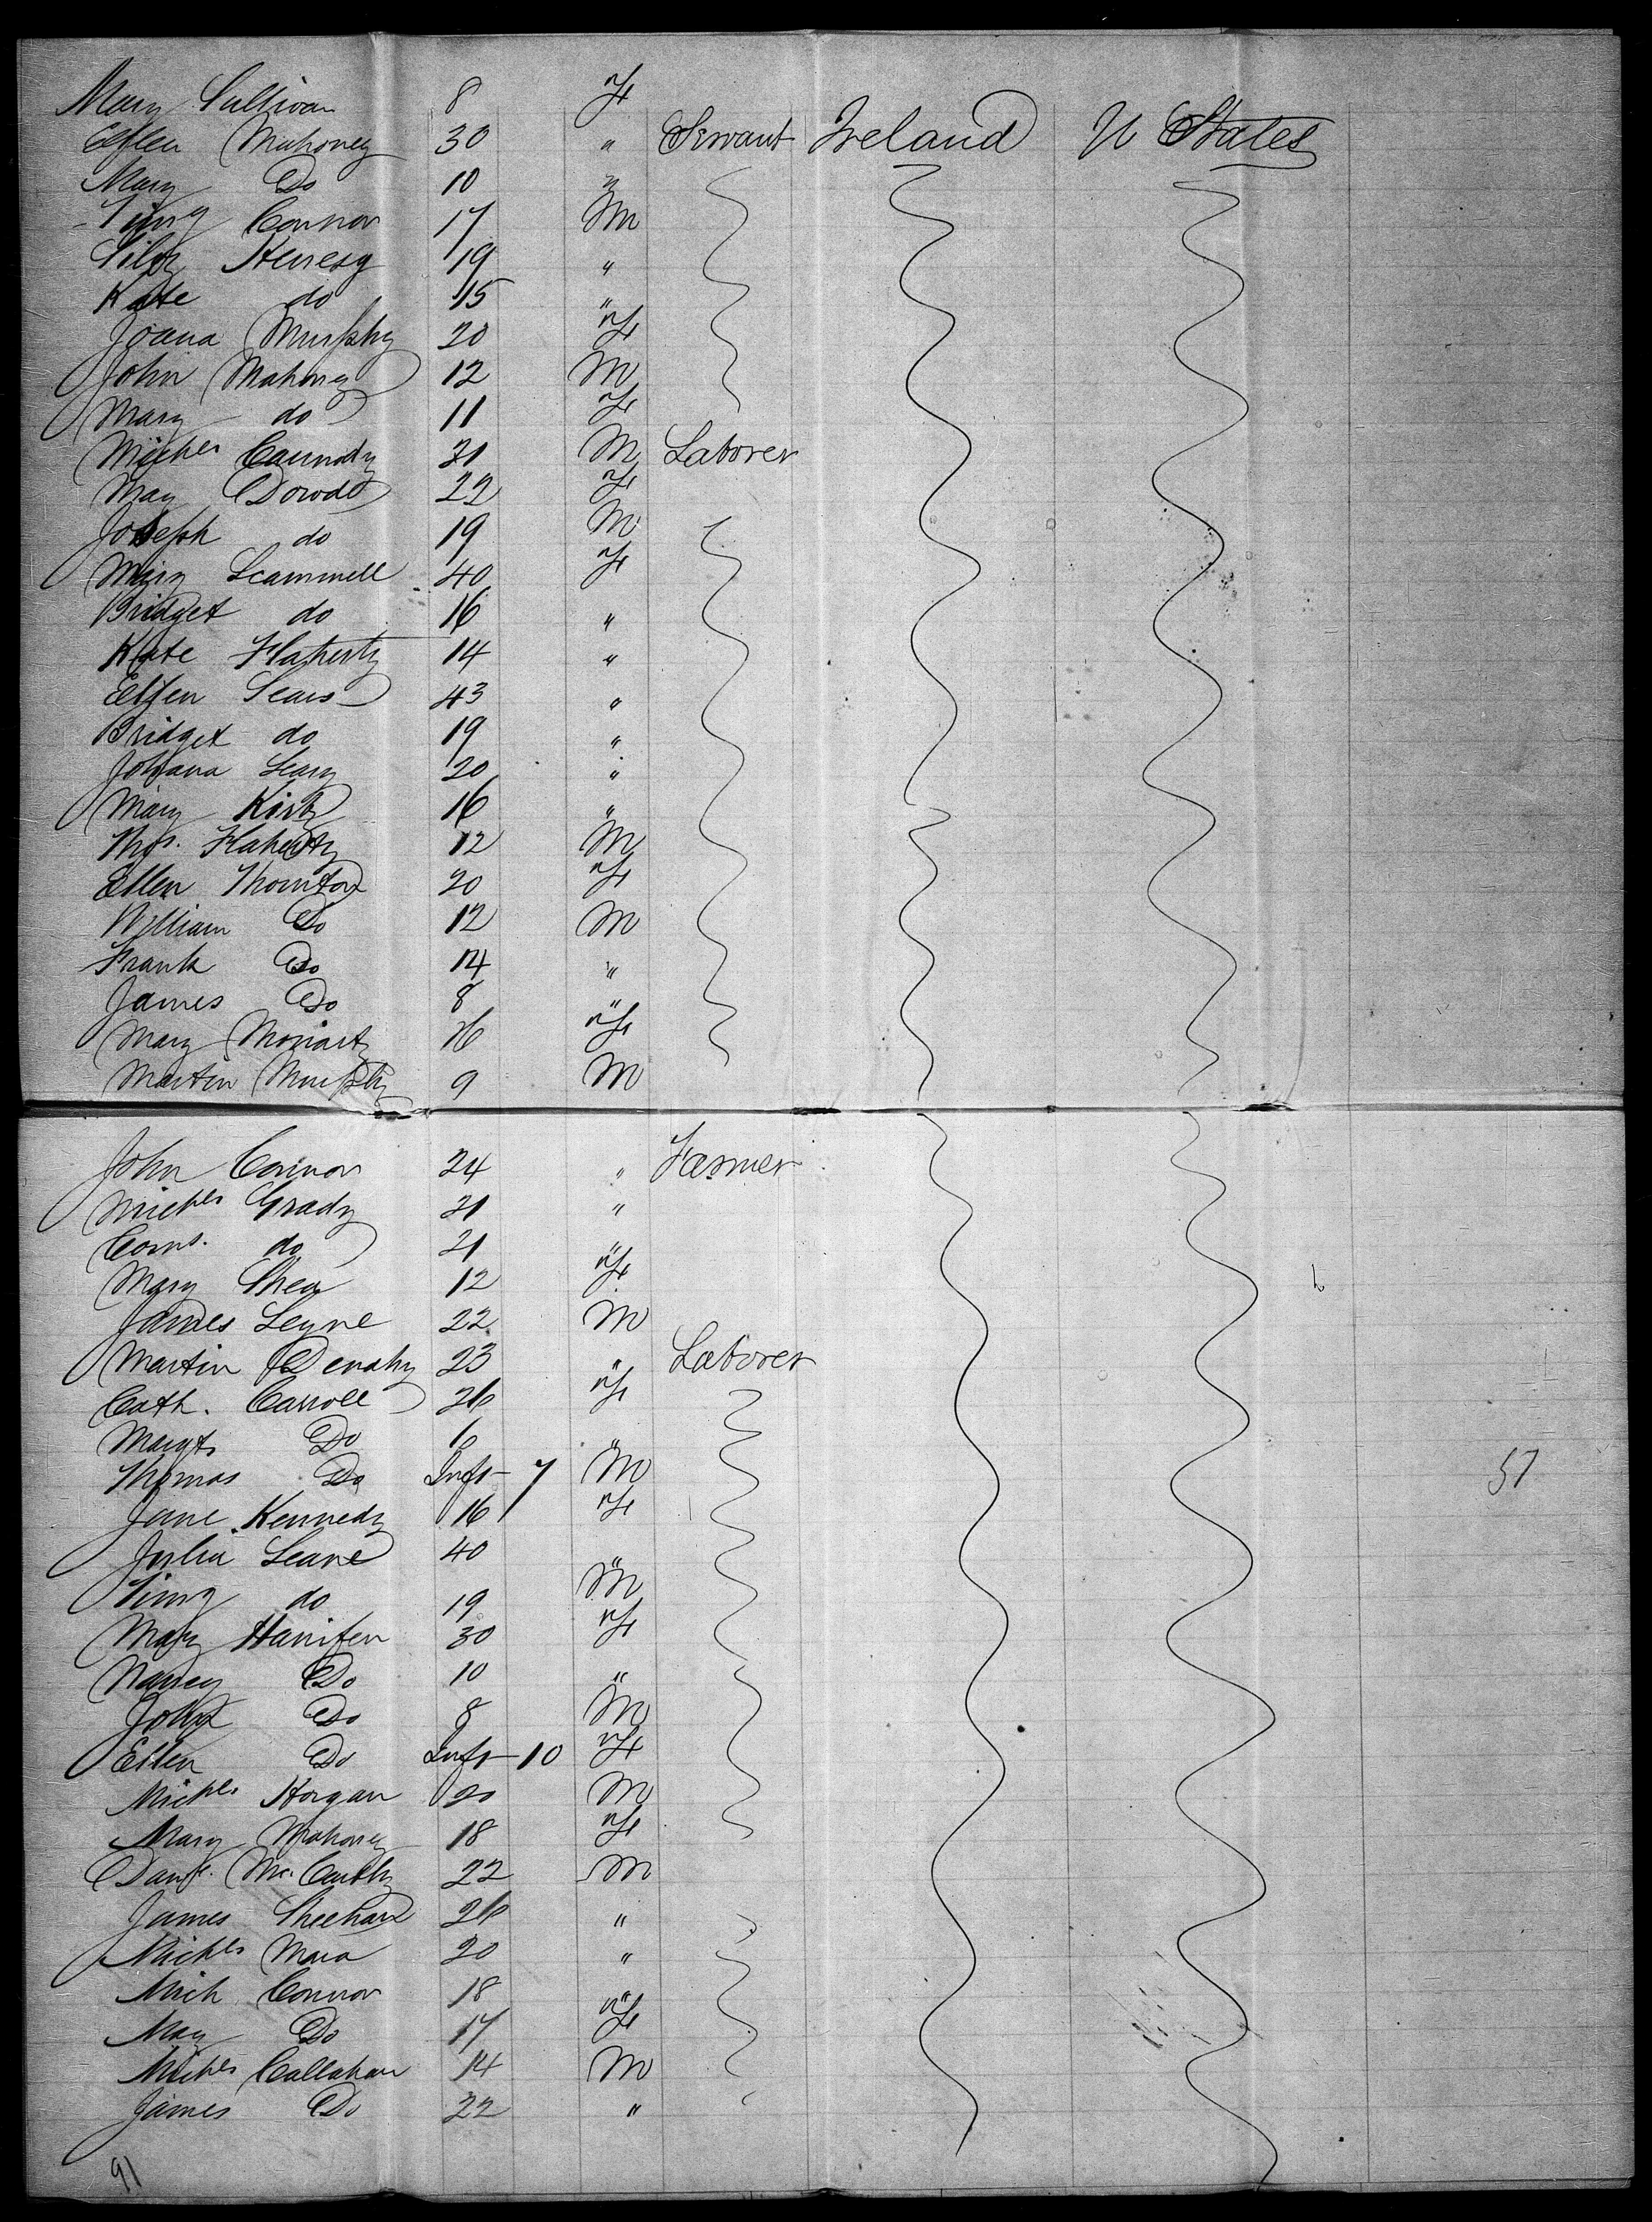 Mary Sullivan 8 F
Ellen Mahoney 30 " Servant Ireland U States
Mary Do 10 "
Timy Connor 17 M
Henesy 19 "
Kate do 15 "
Joana Murphy 20 F
John Mahoney 12 M
Mary do 11 F
Michl Laborer M
May Dowd 22 F
Joseph do 19 M
Mary Scannell 40 F
Bridget do 16 "
Kate Flaherty 14 "
Ellen Sears 43 "
Bridget do 19 "
Johana Leary 20 "
Mary Kirby 16 "
Thos. Flaherty 12 M
Ellen Thornton 20 F
William Do 12 M
Frank Do 14 "
James Do 8 "
Mary Moriarty 16 F
Martin Murphy 9 M
John Connor 24 " Farmer
Michl Grady 21 "
Corns. do 21 "
Mary Shea 12 F
James Leyne 22 M
Martin 23 " Laborer
Cath. Carroll 26 F
Margt. Do 1 "
Thomas Do Inft 7 M 51
Jane Kennedy 16 F
Julia Leane 40 "
Timy do 19 M
Mary Hanifen 30 F
Nancy Do 10 "
John Do 8 M
Ellen Do Inft 10 F
Michl. Horgan 20 M
Mary Mahoney 18 F
Danl. McCarthy 22 M
James Sheehan 26 "
Michl Mara 20 "
Mich Connor 18 "
May Do 17 F
Michl Callahan 14 M
James Do 22 "
91